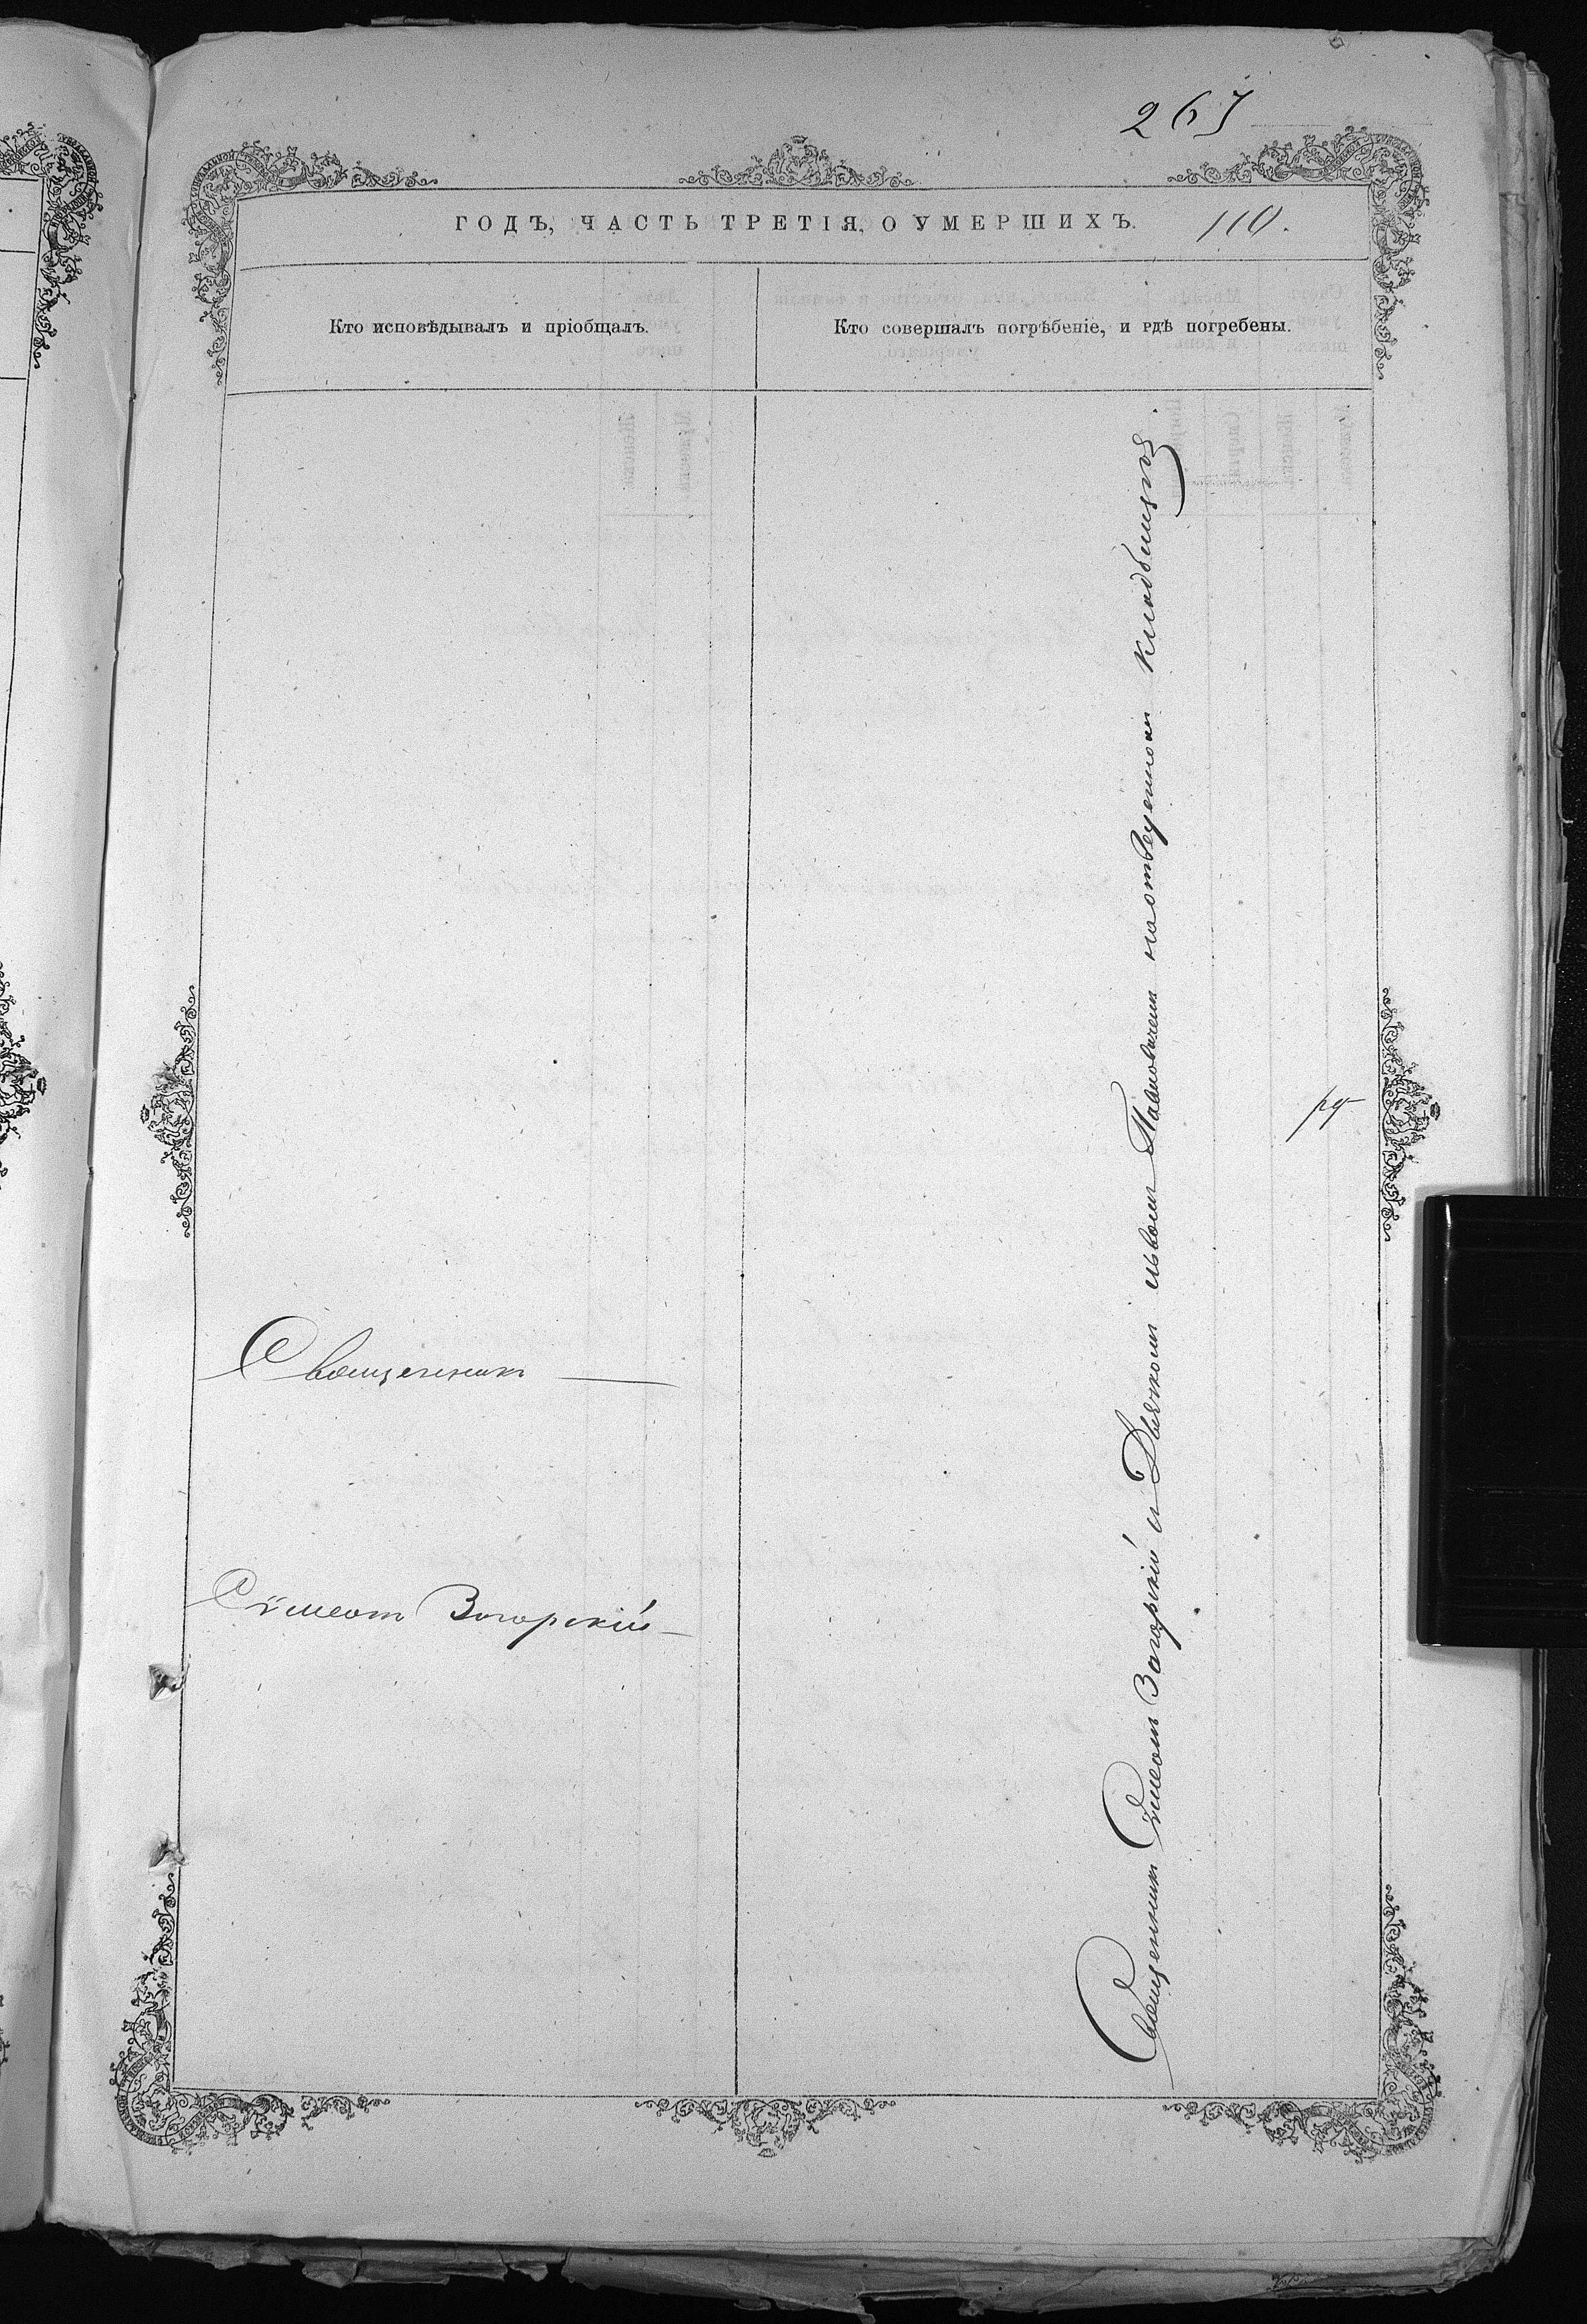 267
ГОДЪ, ЧАСТЬ ТРЕТІЯ, О УМЕРШИХЪ. 110.
Кто исповѣдывалъ и пріобщалъ.
Кто совершалъ погрѣбеніе, и гдѣ погребены.
Священникъ
Сѵмеонъ Загорскій
Священникъ Сѵмеонъ Загорскій и Дьячкомъ Львомъ Павловичемъ на отведенномъ кладбищѣ.